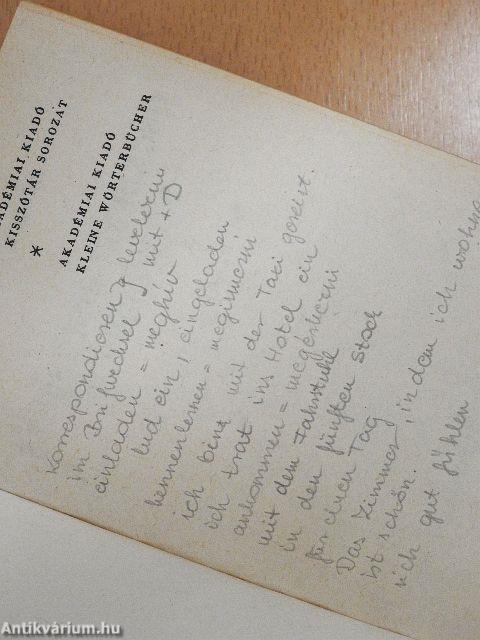 AKADÉMIAI KIADÓ
KISSZÓTÁR SOROZAT
*
AKADÉMIAI KIADÓ
KLEINE WÖRTERBÜCHER
Korrespondieren } levelezni
im Briefwechsel } mit + D
einladen = meghív
lud ein, eingeladen
kennenlernen = megismerni
ich bin mit der Taxi gereist.
ich trat ins Hotel ein
ankommen = megérkezni
mit dem Fahrstuhl
in den fünften Stock
für einen Tag
Das Zimmer, in dem ich wohne
ist schön.
sich gut fühlen
Antikvárium.hu